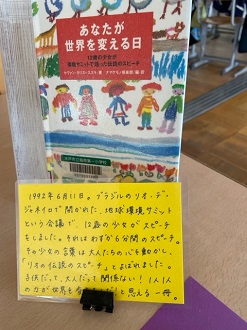 あなたが
世界を変える日
12歳の少女が
環境サミットで語った伝説のスピーチ
ナマケモノ倶楽部/編・訳
1992年6月11日。ブラジルのリオ・デ・
ジャネイロで開かれた、地球環境サミット
という会議で、12歳の少女がスピーチ
をしました。それはわずか6分間のスピーチ。
その少女の言葉は大人たちの心を動かし、
「リオの伝説のスピーチ」とよばれました。
子供だって、大人だって関係ない!1人1人
の力が世界を
と思える一冊。